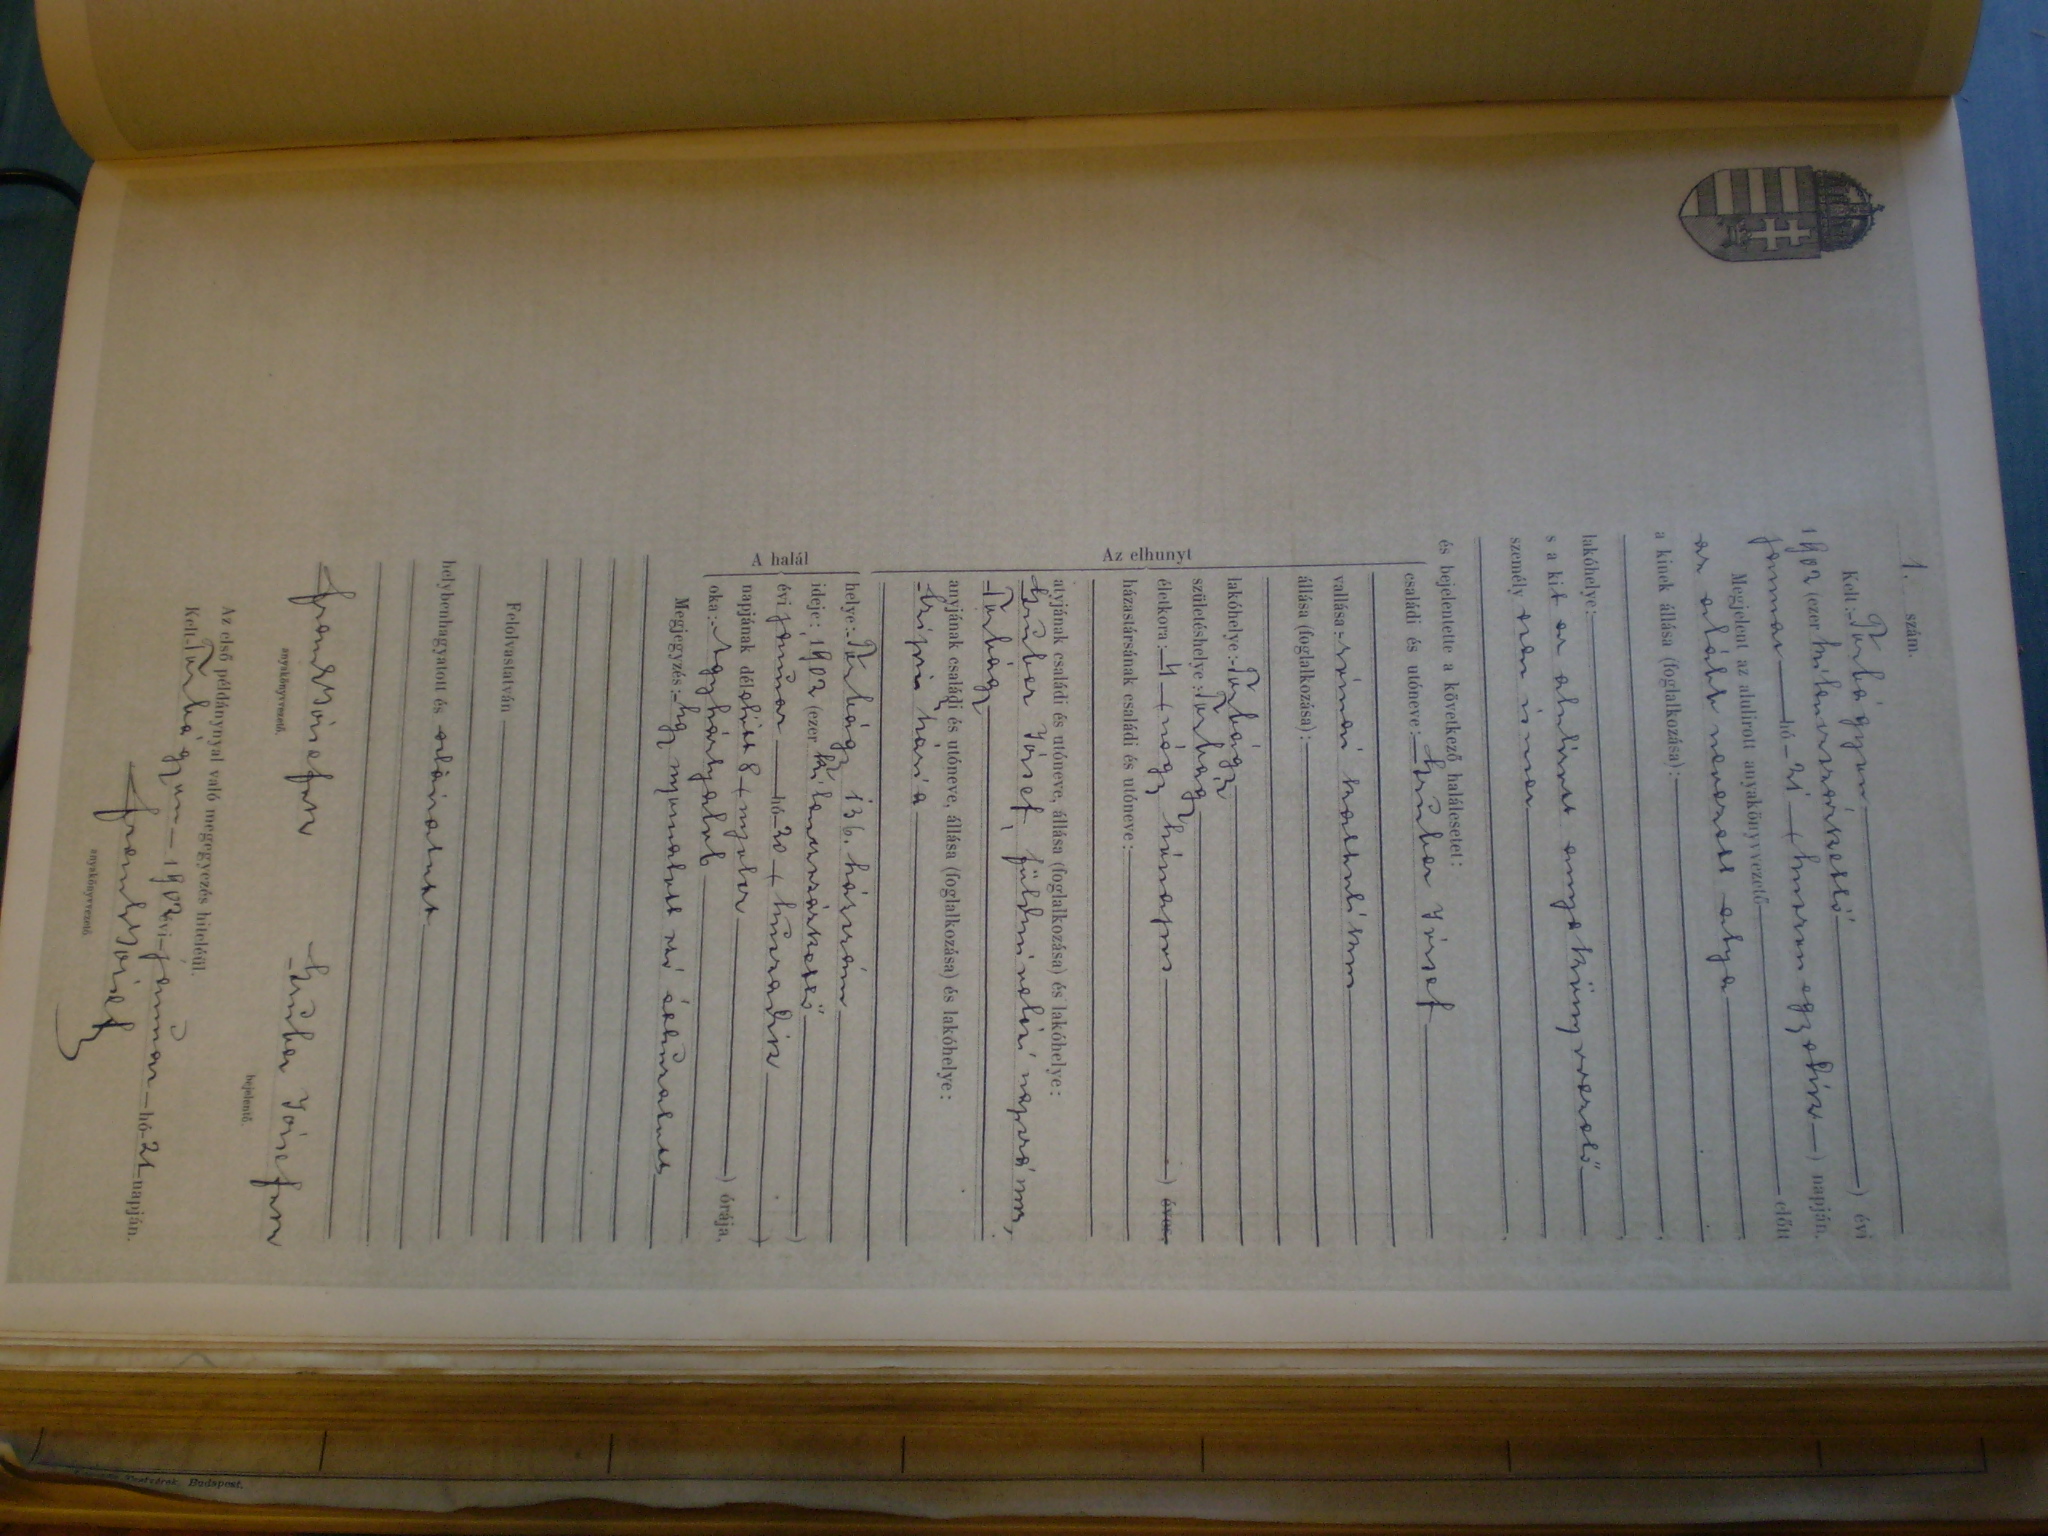 1. szám.
Kelt: Torbágyon
1902 (ezer kilencszázkettő ) évi
január hó 21 (huszonegyedik ) napján.
Megjelent az alulírott anyakönyvvezető előtt
az alább nevezett atya
a kinek állása (foglalkozása):
lakóhelye:
s a kit az alulírott anyakönyvvezető
személyesen ismer
és bejelentette a következő halálesetet:
Az elhunyt
családi és utóneve: Gruber József
vallása: római katholikus
állása (foglalkozása):
lakóhelye: Torbágy
születéshelye: Torbágy
életkora: 4 (négy hónapos ) éves,
házastársának családi és utóneve:
atyjának családi és utóneve, állása (foglalkozása) és lakóhelye:
Gruber József, földmívelési napszámos,
Torbágy
anyjának családi és utóneve, állása (foglalkozása) és lakóhelye:
Mária
A halál
helye: Torbágy 136. házszám
ideje: 1902 (ezer kilencszázkettő )
évi január hó 20 (huszadik )
napjának délelőtt 8 (nyolcz ) órája,
oka: Agyhártyalob
Megjegyzés: Egy nyomtatott szó áthúzatott
Felolvastatván
helybenhagyatott és aláíratott
József Gruber József
anyakönyvvezető. bejelentő.
Az első példánynyal való megegyezés hiteléül.
Kelt Torbágyon 1902 évi január hó 21 napján.
József
anyakönyvvezető
Testvérek Budapest.